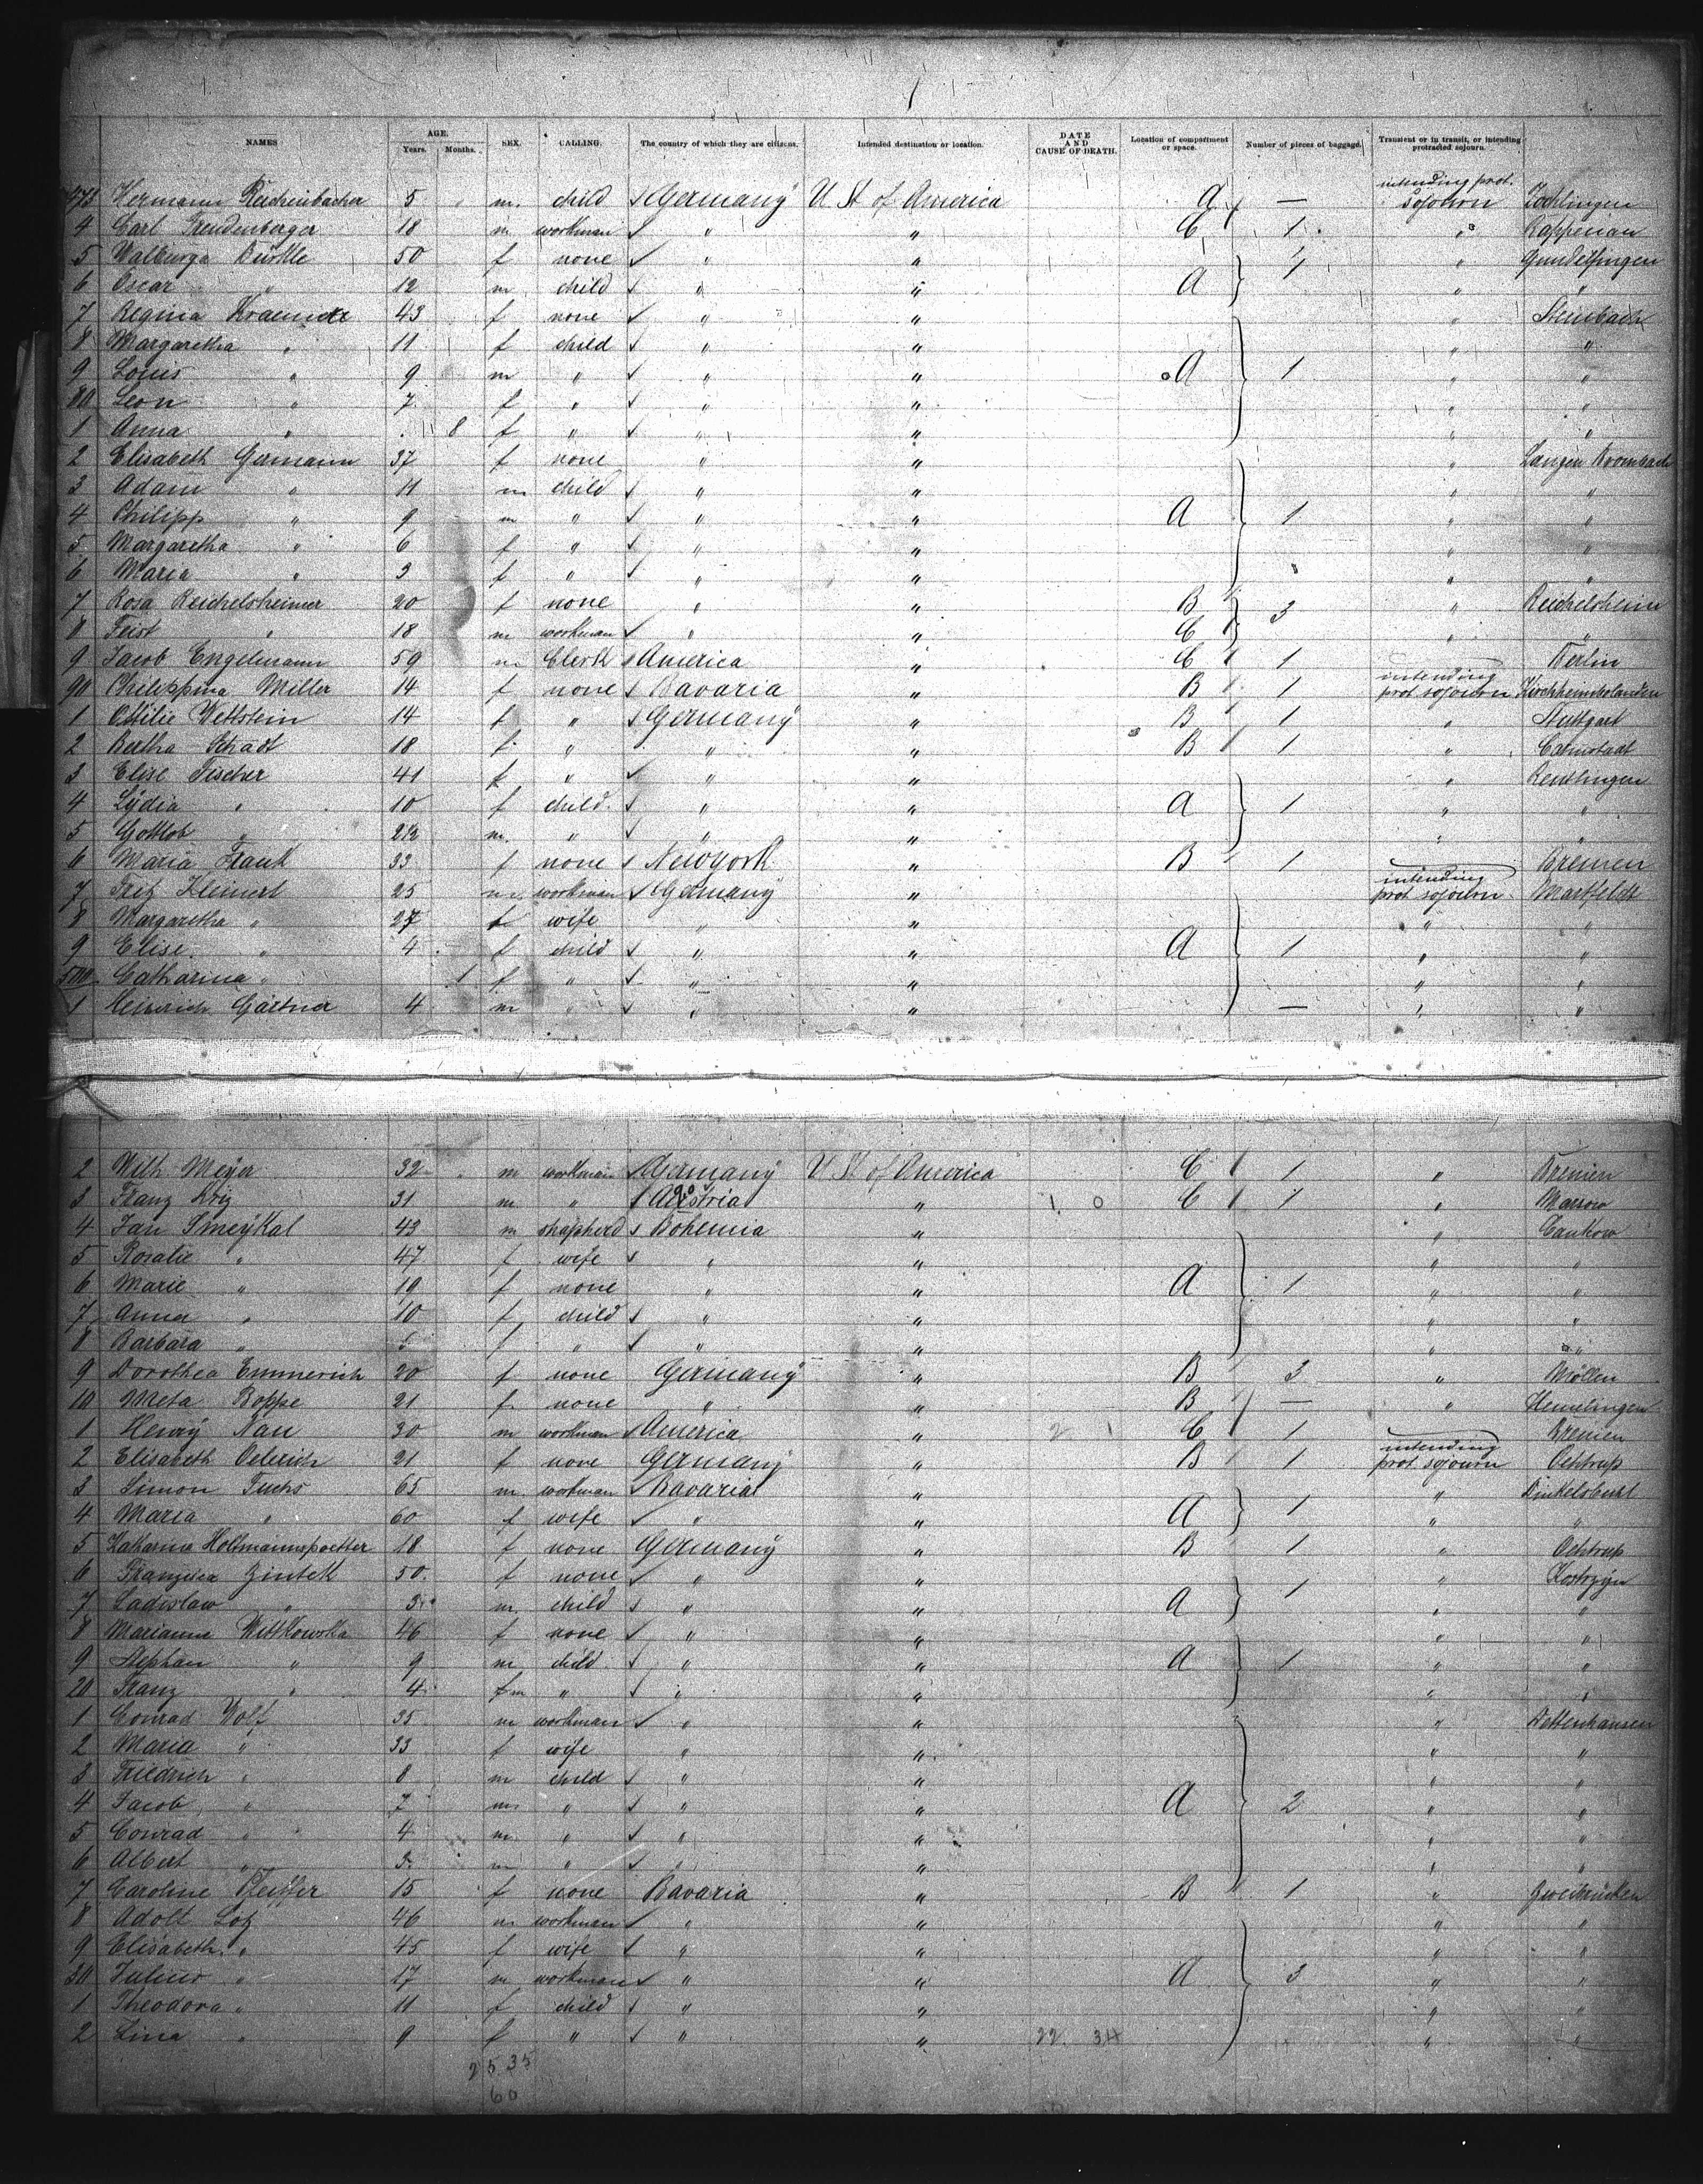 NAMES AGE. Years. Months. SEX. CALLING. The country of which they are citizens. Intended destination or location. DATE AND CAUSE OF DEATH. Location of compartment or space. Number of pieces of baggage. Transient or in transit, or intending protracted sojourn.
473 Hermann Reichenbacher 5 m. child Germany U St of America A — intending prot. sojourn
4 Carl Freudenberger 18 m workman " " C 1 " Rappenau
5 Walburga Bürkle 50 f none " " 1 " Gundelfingen
6 Oscar " 12 m child " " A " "
7 Regina 43 f none " " " Steinbach
8 Margaretha " 11 f child " " " "
9 Louis " 9 m " " " A 1 " "
80 Leon " 7 f " " " " "
1 Anna " 8 f " " " " "
2 Elisabeth Germann 37 f none " " " Langen
3 Adam " 11 m child " " " "
4 Philipp " 9 m " " " A 1 " "
5 Margaretha " 6 f " " " " "
6 Maria " 3 f " " " " "
7 Rosa Reichelsheimer 20 f none " " B 3 " Reichelsheim
8 Feist " 18 m workman " " C " "
9 Jacob Engelmann 59 m Clerk America " C 1 Berlin
90 Philippina Miller 14 f none Bavaria " B 1 intending prot sojourn Kirchheimbolanden
1 Ottilie Wettstein 14 f " Germany " B 1 " Stuttgart
2 Bertha Schadt 18 f " " " B 1 " Cannstadt
3 Elise Fischer 41 f " " " " Reutlingen
4 Lydia " 10 f child " " A 1 " "
5 Gottlob " m. " " " " "
6 Maria Frank 33 f none Newyork " B 1 Bremen
7 Fritz Kleinert 25 m workman Germany " intending prot sojourn Martfeldt
8 Margaretha " 27 f wife " " " "
9 Elise " 4 f child " " A 1 " "
500 Catharina " 1 f " " " " "
1 Heinrich Gärtner 4 m " " " — " "
2 Wilh Meyer 32 m workman Germany U St of America C 1 " Bremen
3 Franz Kriz 31 m " Austria " 1 0 C 1 "
4 Jan Smeykal 43 m shapherd Bohemia " "
5 Rosalie " 47 f wife " " " "
6 Marie " 19 f none " " A 1 " "
7 Anna " 10 f child " " " "
8 Barbara " 5 f " " " " "
9 Dorothea Emmerich 20 f none Germany " B 3 " Möllen
10 Meta Boppe 21 f none " " B — " Hemelingen
1 Henry Nau 30 m workman America " 2 1 C 1 Bremen
2 Elisabeth Oelerich 21 f none Germany " B 1 intending prot sojourn Ochtrup
3 Simon Fuchs 65 m workman Bavaria " " Dinkelsbuhl
4 Maria " 60 f wife " " A 1 " "
5 Katharina Holtmannspoetter 18 f none Germany " B 1 " Ochtrup
6 Franziska Zintek 50 f none " " " Kostrzyn
7 Ladislaw " 3 m. child " " A 1 " "
8 Marianna Wittkowska 46 f none " " " "
9 Stephan " 9 m child " " A 1 " "
20 Franz " 4 m " " " " "
1 Conrad Wolf 35 m workman " " " Dettenhausen
2 Maria " 33 f wife " " " "
3 Friedrich " 8 m child " " " "
4 Jacob " 7 m " " " A 2 " "
5 Conrad " 4 m " " " " "
6 Albert " 3 m " " " " "
7 Caroline Pfeiffer 15 f none Bavaria " B 1 " Zweibrücken
8 Adolf Lotz 46 m workman " " " "
9 Elisabeth " 45 f wife " " " "
30 Julius " 17 m workman " " A 3 " "
1 Theodora " 11 f child " " " "
2 Lina " 9 f " " " 22. 34 " "
25 35
60